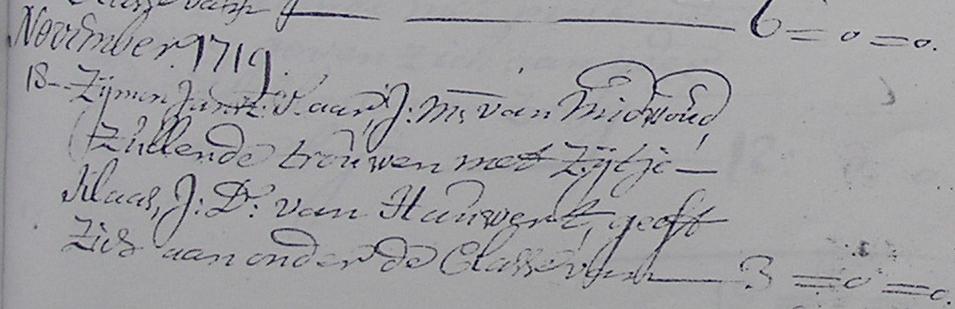 Classe van 6 = 0 = 0.
November. 1719.
18 - Zijmen Jansz: Vaar, J: M: van Midwoud
Zullende trouwen met Zijtje
Klaas, J: D: van Hauwert, geeft
Zich aan onder de Classe van 3 = 0 = 0.